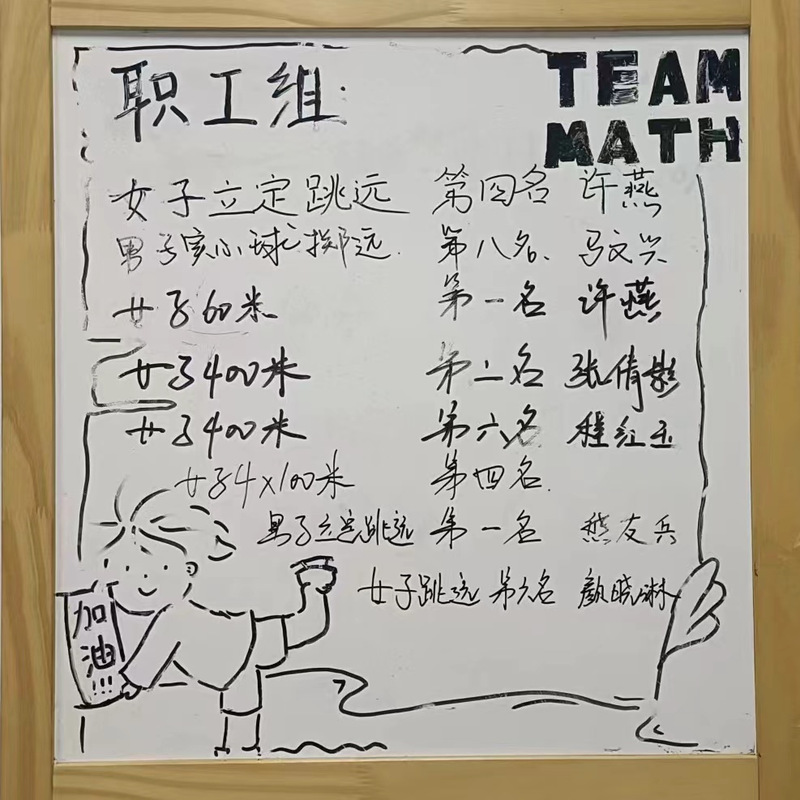 职工组:
TEAM
MATH
女子立定跳远 第四名 许燕
男子实心球掷远. 第八名. 马文兴
女子60米 第一名 许燕
女子400米 第二名 张倩影
女子400米 第六名 程红玉
女子4×100米 第四名.
男子立定跳远 第一名 熊友兵
女子跳远 第六名 颜晓琳
加油!!!